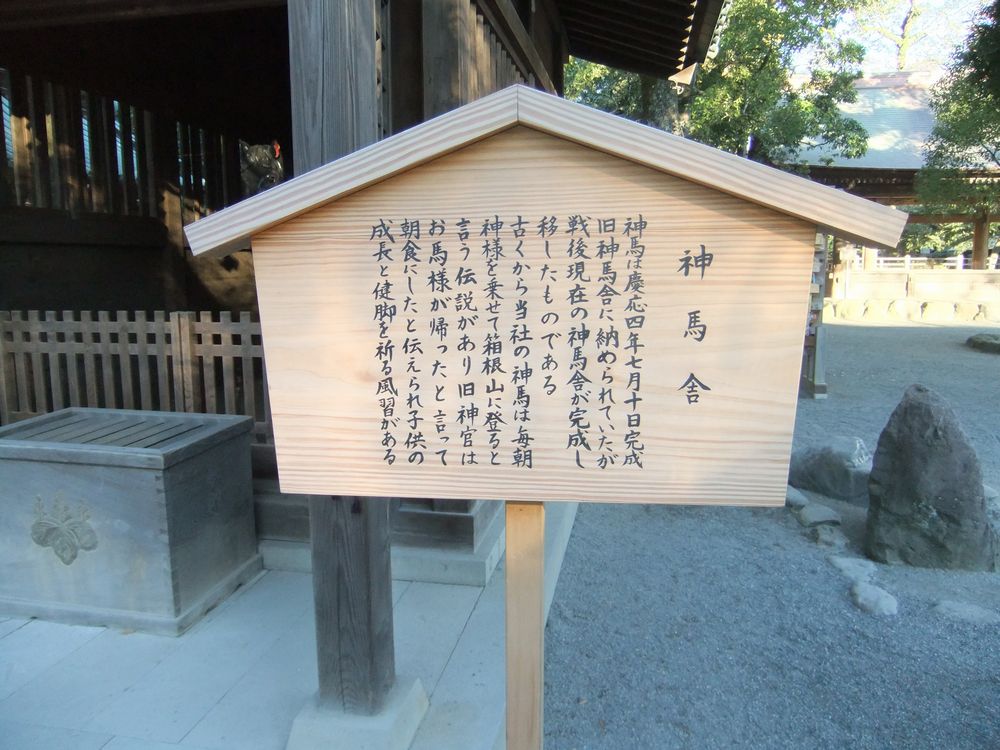 神馬舎
神馬は慶応四年七月十日完成
旧神馬舎に納められていたが
戦後現在の神馬舎が完成し
移したものである
古くから当社の神馬は毎朝
神様を乗せて箱根山に登ると
言う伝説があり旧神官は
お馬様が帰ったと言って
朝食にしたと伝えられ子供の
成長と健脚を祈る風習がある